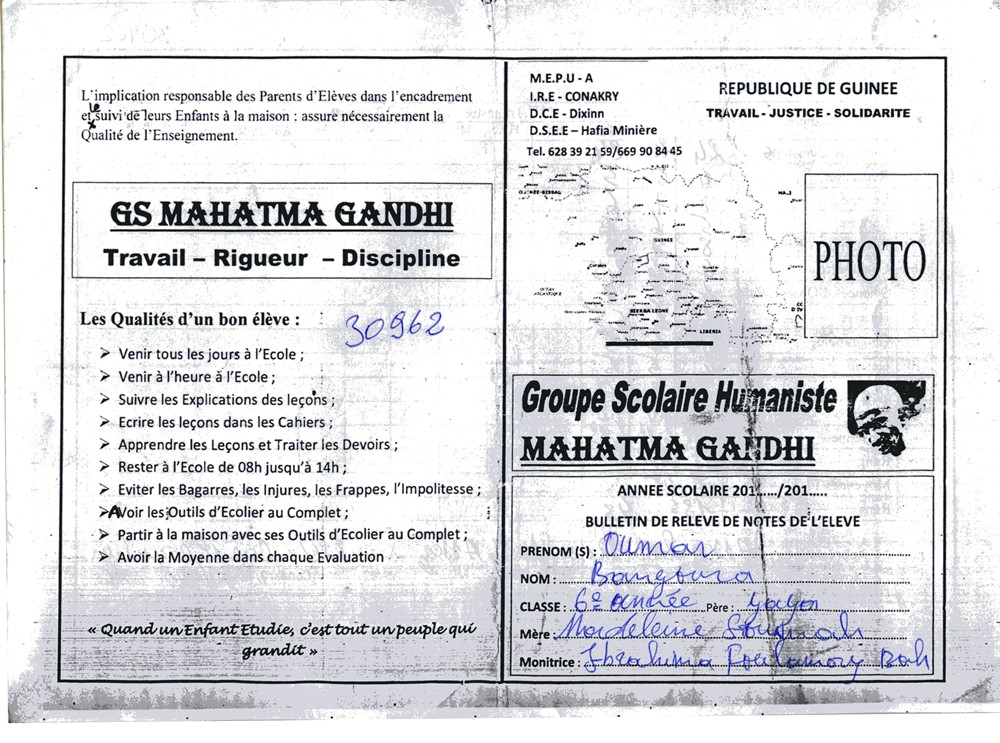 L'implication responsable des Parents d'Elèves dans l'encadrement
et le suivi de leurs Enfants à la maison : assure nécessairement la
Qualité de l'Enseignement.
GS MAHATMA GANDHI
Travail – Rigueur – Discipline
Les Qualités d'un bon élève :
30962
➢ Venir tous les jours à l'Ecole ;
➢ Venir à l'heure à l'Ecole ;
➢ Suivre les Explications des leçons ;
➢ Ecrire les leçons dans les Cahiers ;
➢ Apprendre les Leçons et Traiter les Devoirs ;
➢ Rester à l'Ecole de 08h jusqu'à 14h ;
➢ Eviter les Bagarres, les Injures, les Frappes, l'Impolitesse ;
➢ Avoir les Outils d'Ecolier au Complet ;
➢ Partir à la maison avec ses Outils d'Ecolier au Complet ;
➢ Avoir la Moyenne dans chaque Evaluation
« Quand un Enfant Etudie, c'est tout un peuple qui
grandit »
M.E.P.U - A
I.R.E - CONAKRY
D.C.E - Dixinn
D.S.E.E – Hafia Minière
Tel. 628 39 21 59/669 90 84 45
REPUBLIQUE DE GUINEE
TRAVAIL - JUSTICE - SOLIDARITE
GUINEE
SIERRA LEONE
LIBERIA
PHOTO
Groupe Scolaire Humaniste
MAHATMA GANDHI
ANNEE SCOLAIRE 201...../201.....
BULLETIN DE RELEVE DE NOTES DE L'ELEVE
PRENOM (S) : Oumar
NOM : Bangoura
CLASSE : 6e année Père : Yaya
Mère : Madeleine
Monitrice : Ibrahima Bah